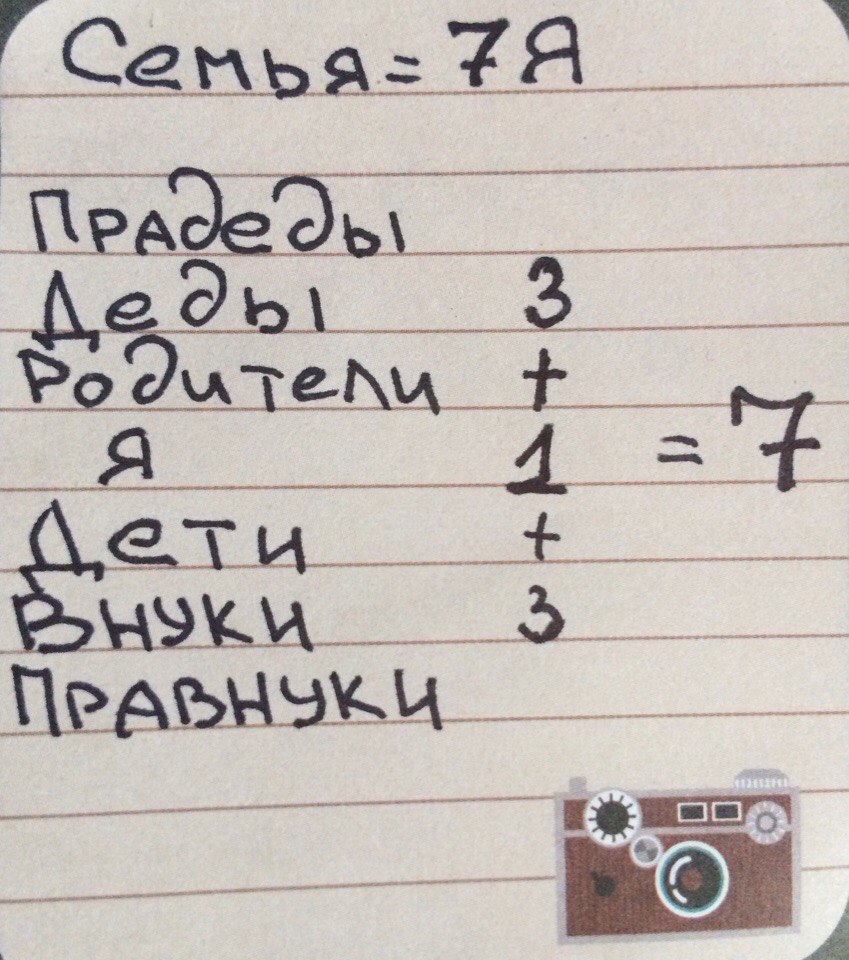 Семья = 7Я
Прадеды
Деды 3
Родители +
Я 1 = 7
Дети +
Внуки 3
Правнуки